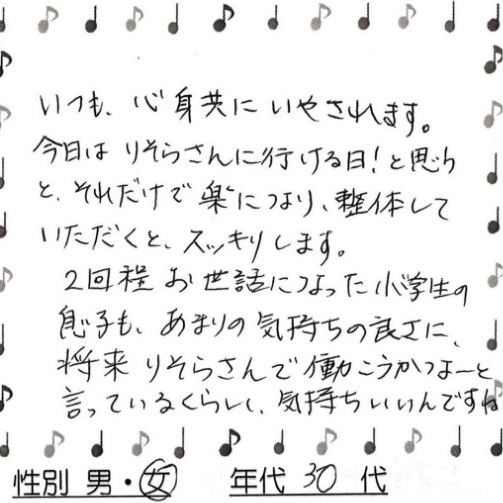 いつも、心身共にいやされます。
今日はりそらさんに行ける日!と思う
と、それだけで楽になり、整体して
いただくと、スッキリします。
2回程お世話になった小学生の
息子も、あまりの気持ちの良さに、
将来りそらさんで働こうかなーと
言っているくらい、気持ちいいんですね
性別 男・女 年代 30 代